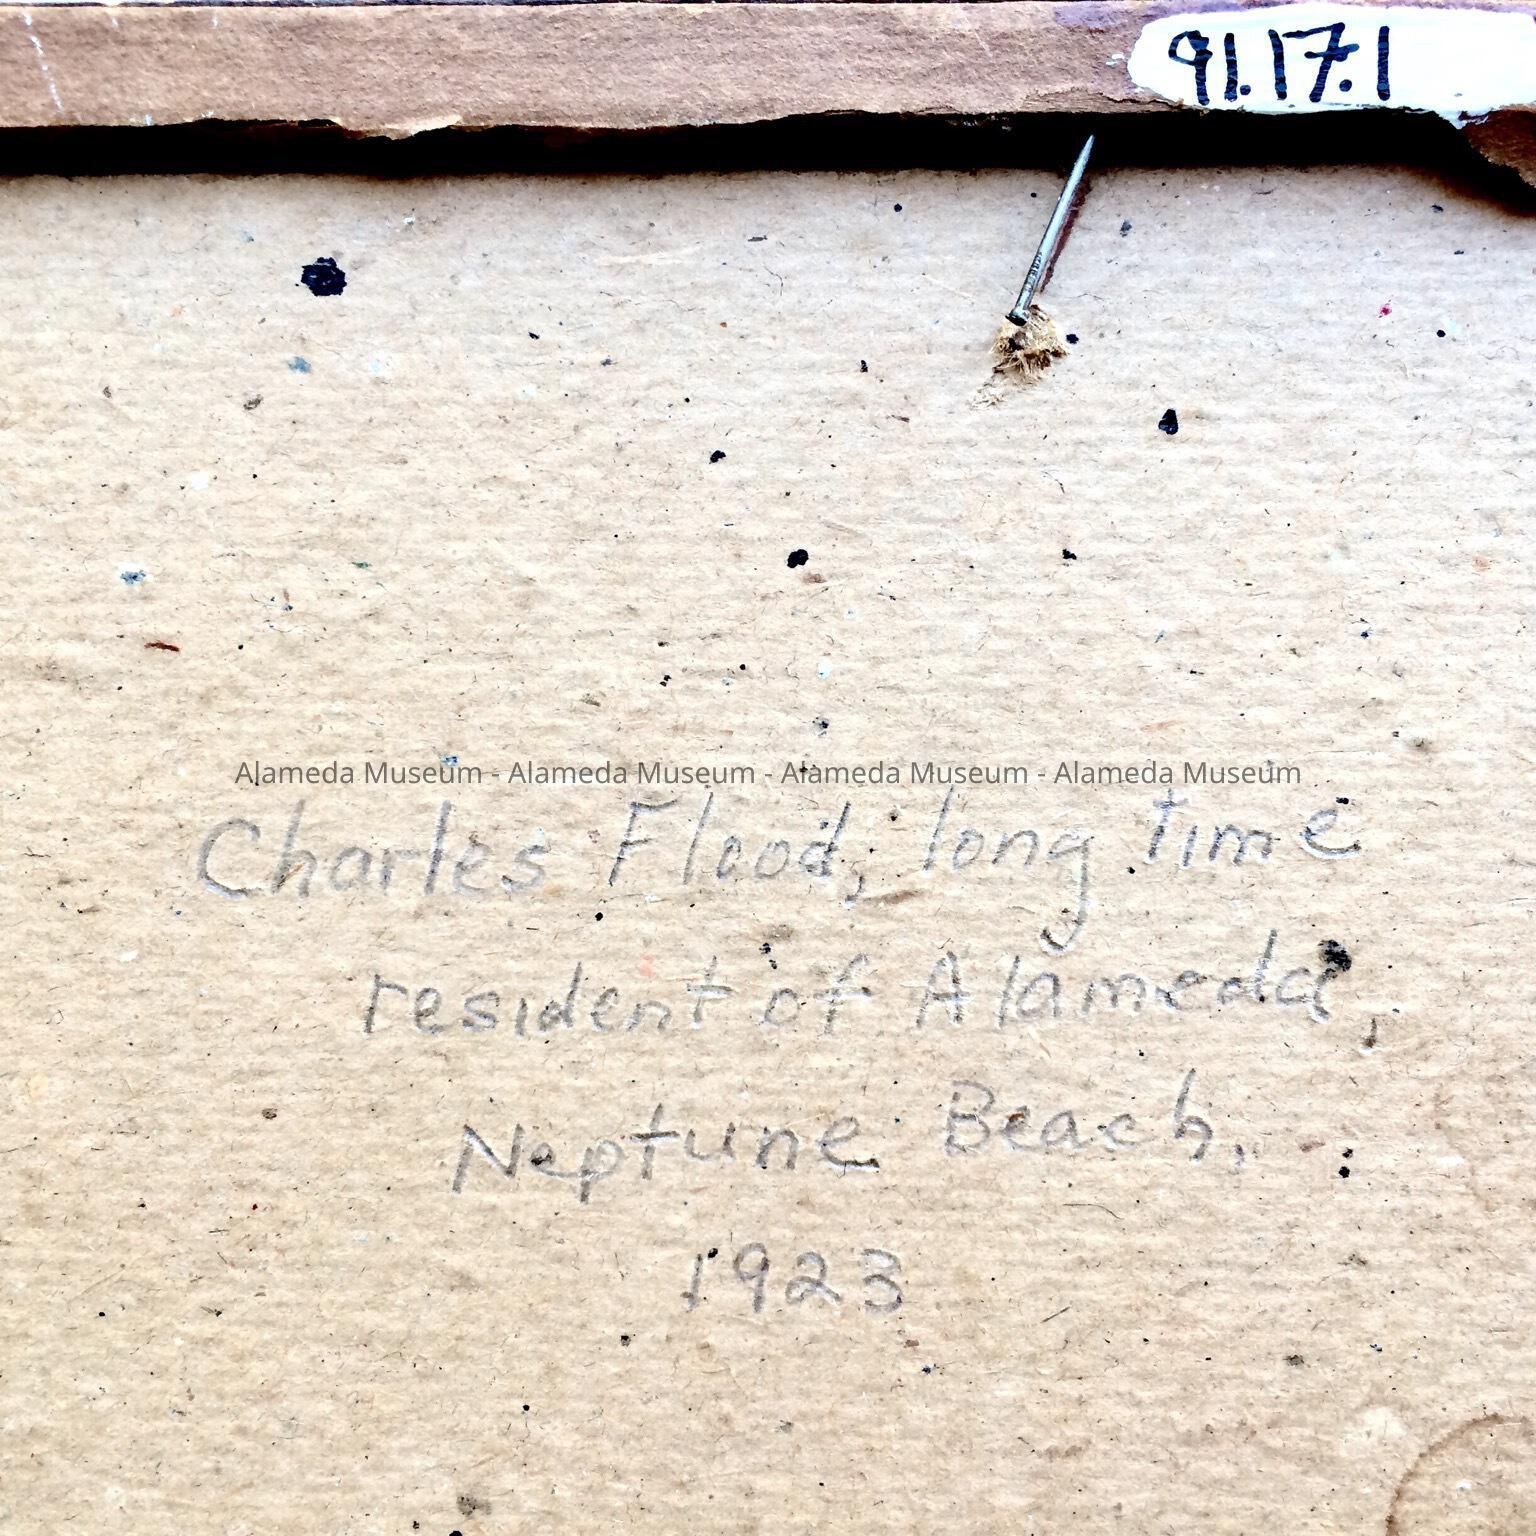 91.17.1
Alameda Museum - Alameda Museum - Alameda Museum - Alameda Museum
Charles Flood, long time
resident of Alameda,
Neptune Beach,
1923